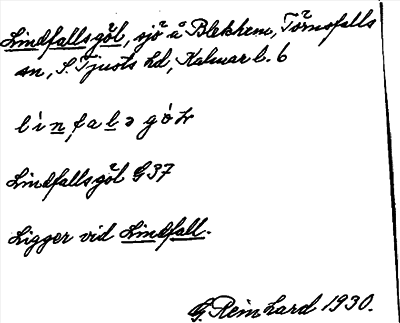 Lindfallsgöl, sjö å Blekhem, Törnsfalls
sn, S. Tjusts hd, Kalmar l. 6
Lindfallsgöl G 37
Ligger vid Lindfall.
G. Reinhard 1930.